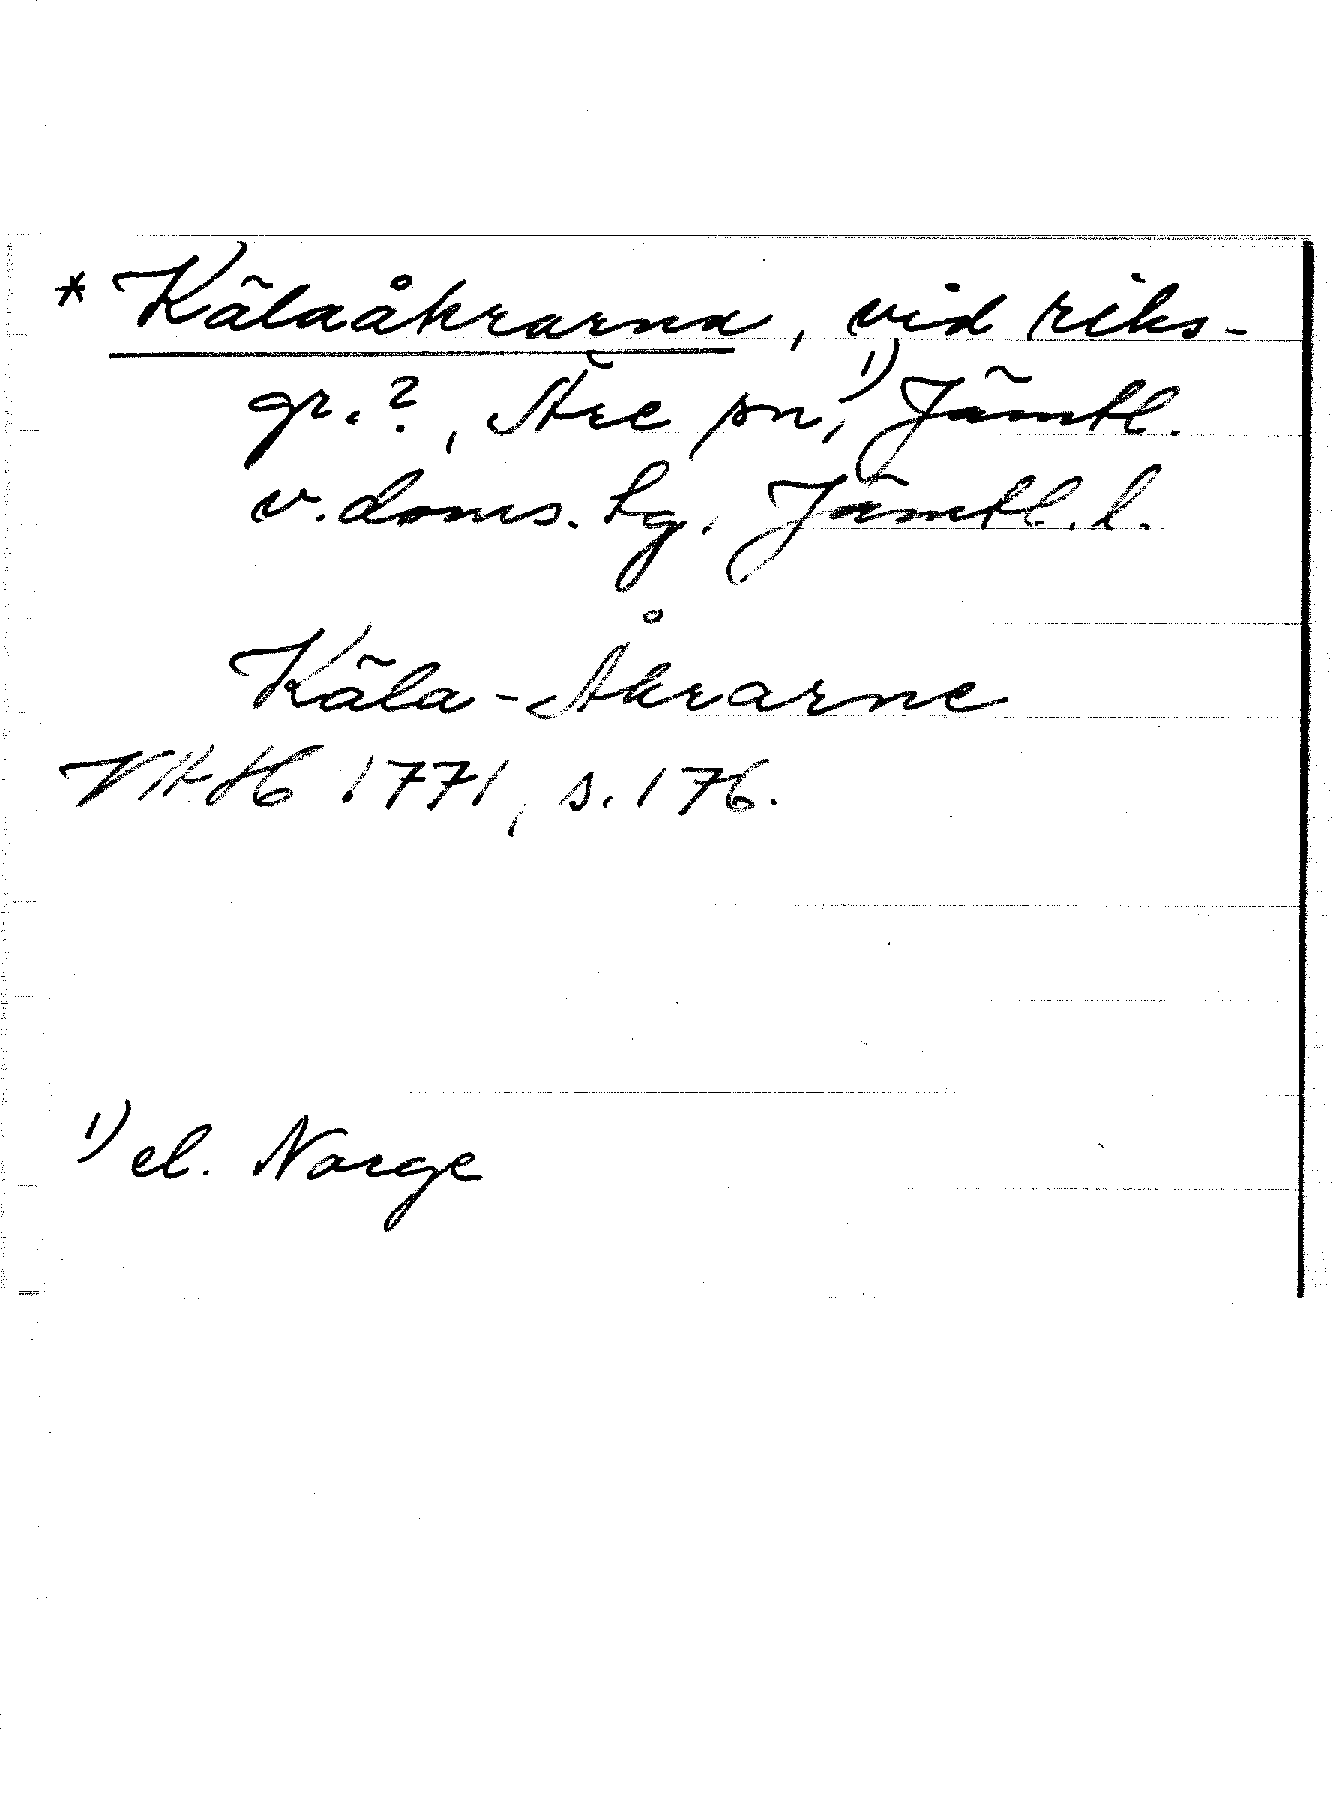 * Kälaåkrarna, vid riks-
gr.?, Åre sn,¹) Jämtl.
v. doms. tg. Jämtl. l.
Käla-Åkrarne
VHAH 1771, s. 176.
¹) el. Norge